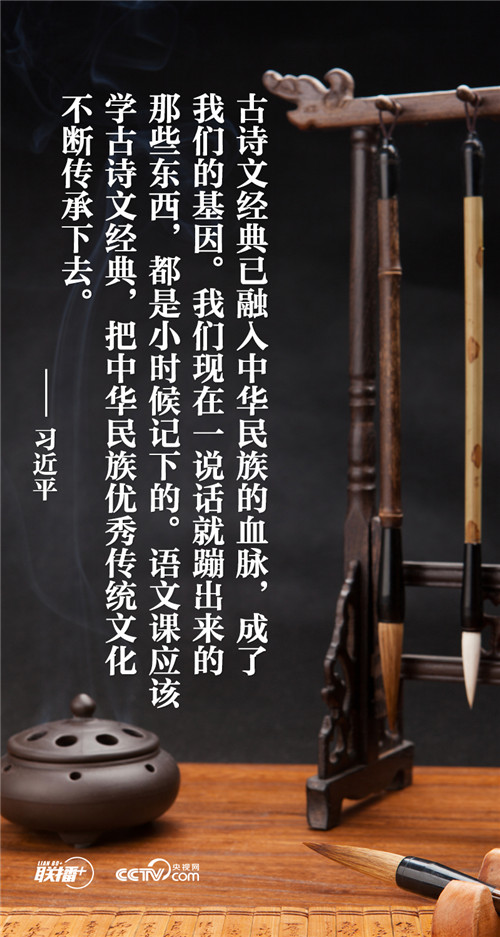 古诗文经典已融入中华民族的血脉，成了
我们的基因。我们现在一说话就蹦出来的
那些东西，都是小时候记下的。语文课应该
学古诗文经典，把中华民族优秀传统文化
不断传承下去。
——习近平
LIAN BO+
联播+
CCTV 央视网
com